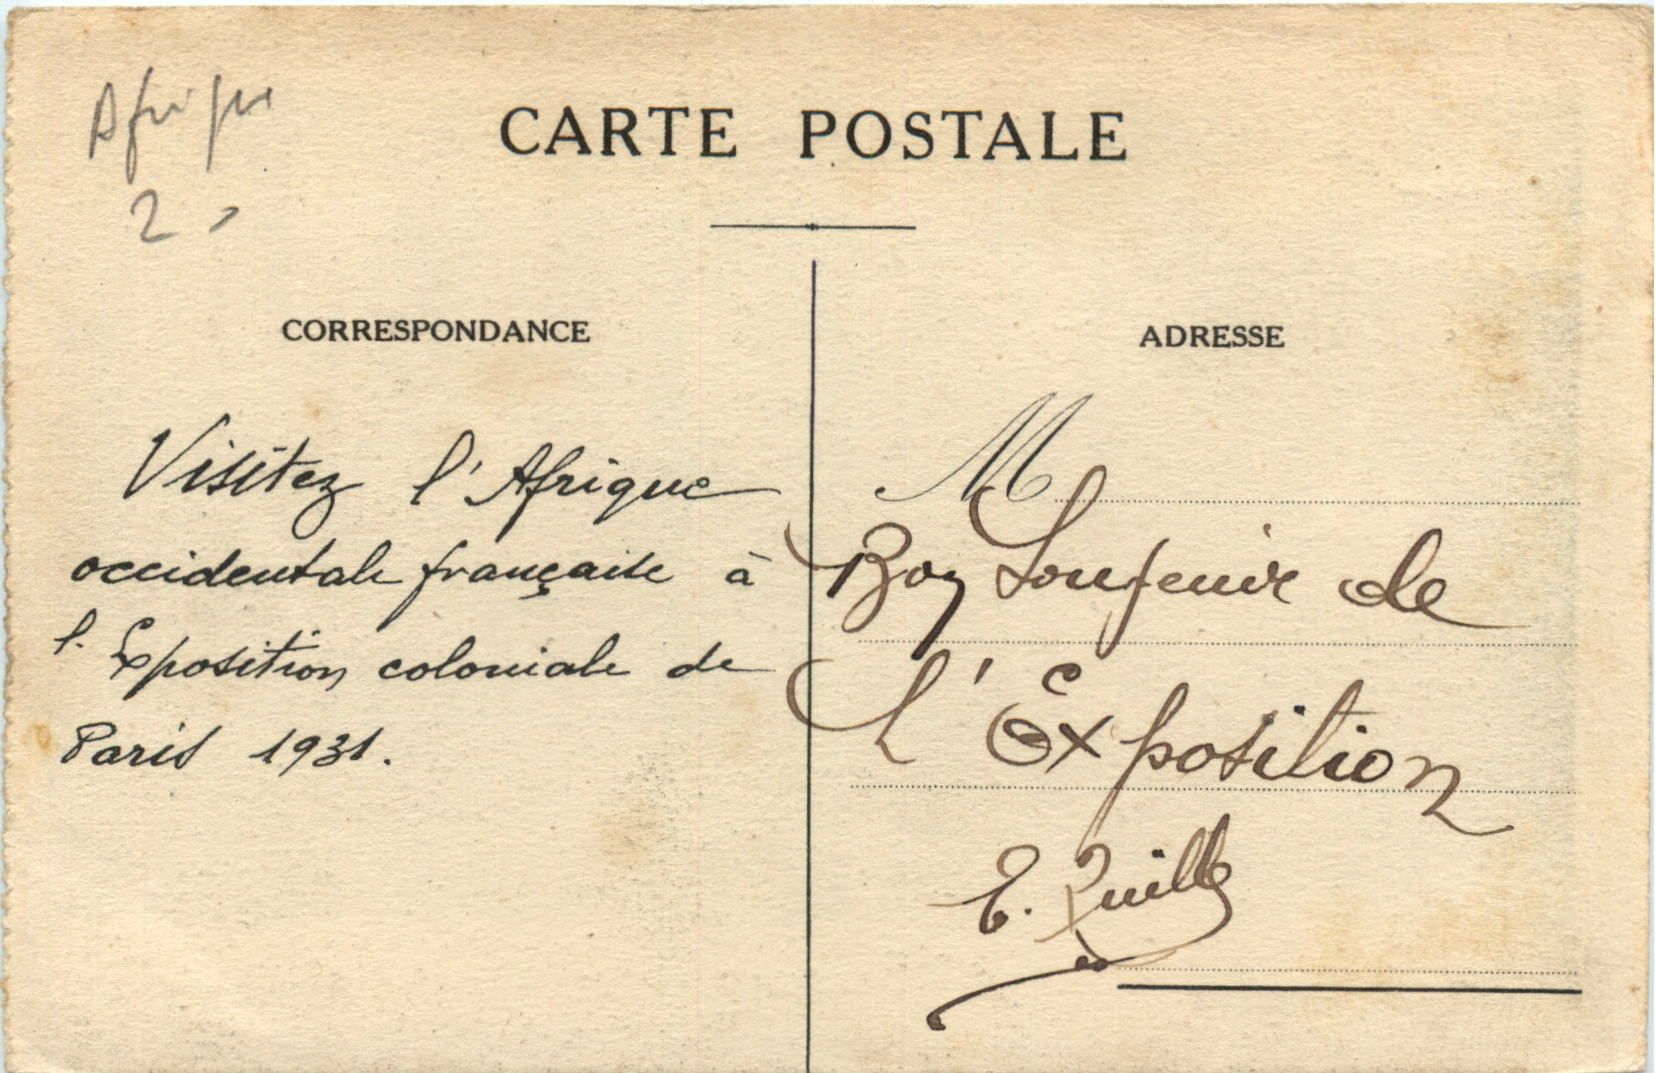 Afrique
2
CARTE POSTALE
CORRESPONDANCE
ADRESSE
Visitez l'Afrique
occidentale française à
l'Exposition coloniale de
Paris 1931.
M
Bon Souvenir de
L'Exposition